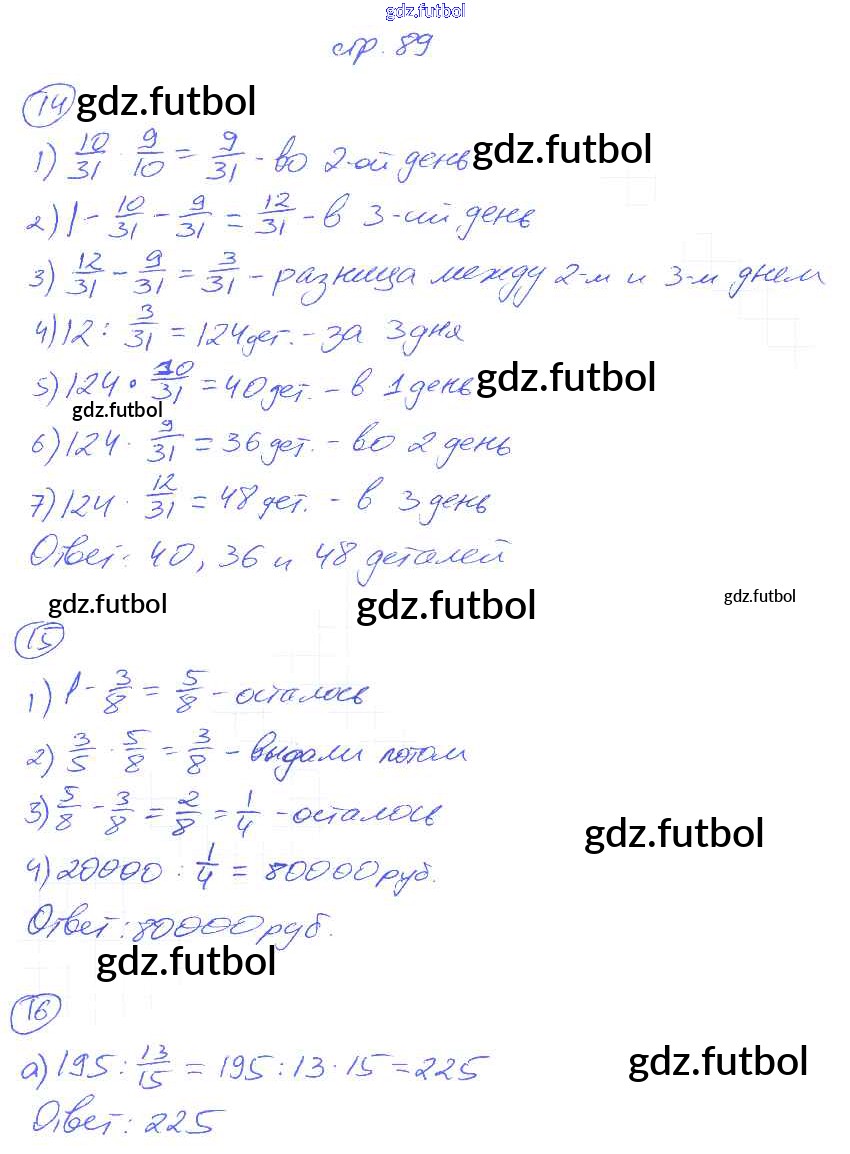 gdz.futbol
стр. 89
14 gdz.futbol
1) 10/31 · 9/10 = 9/31 - во 2-ой день gdz.futbol
2) 1 - 10/31 - 9/31 = 12/31 - в 3-ий день
3) 12/31 - 9/31 = 3/31 - разница между 2-м и 3-м днем
4) 12 : 3/31 = 124 дет. - за 3 дня
5) 124 · 10/31 = 40 дет. - в 1 день gdz.futbol
gdz.futbol
6) 124 · 9/31 = 36 дет. - во 2 день
7) 124 · 12/31 = 48 дет. - в 3 день
Ответ: 40, 36 и 48 деталей
gdz.futbol gdz.futbol gdz.futbol
15
1) 1 - 3/8 = 5/8 - осталось
2) 3/5 · 5/8 = 3/8 - выдали потом
3) 5/8 - 3/8 = 2/8 = 1/4 - осталось
gdz.futbol
4) 20000 : 1/4 = 80000 руб.
Ответ: 80000 руб.
gdz.futbol
16
а) 195 : 13/15 = 195 : 13 · 15 = 225 gdz.futbol
Ответ: 225